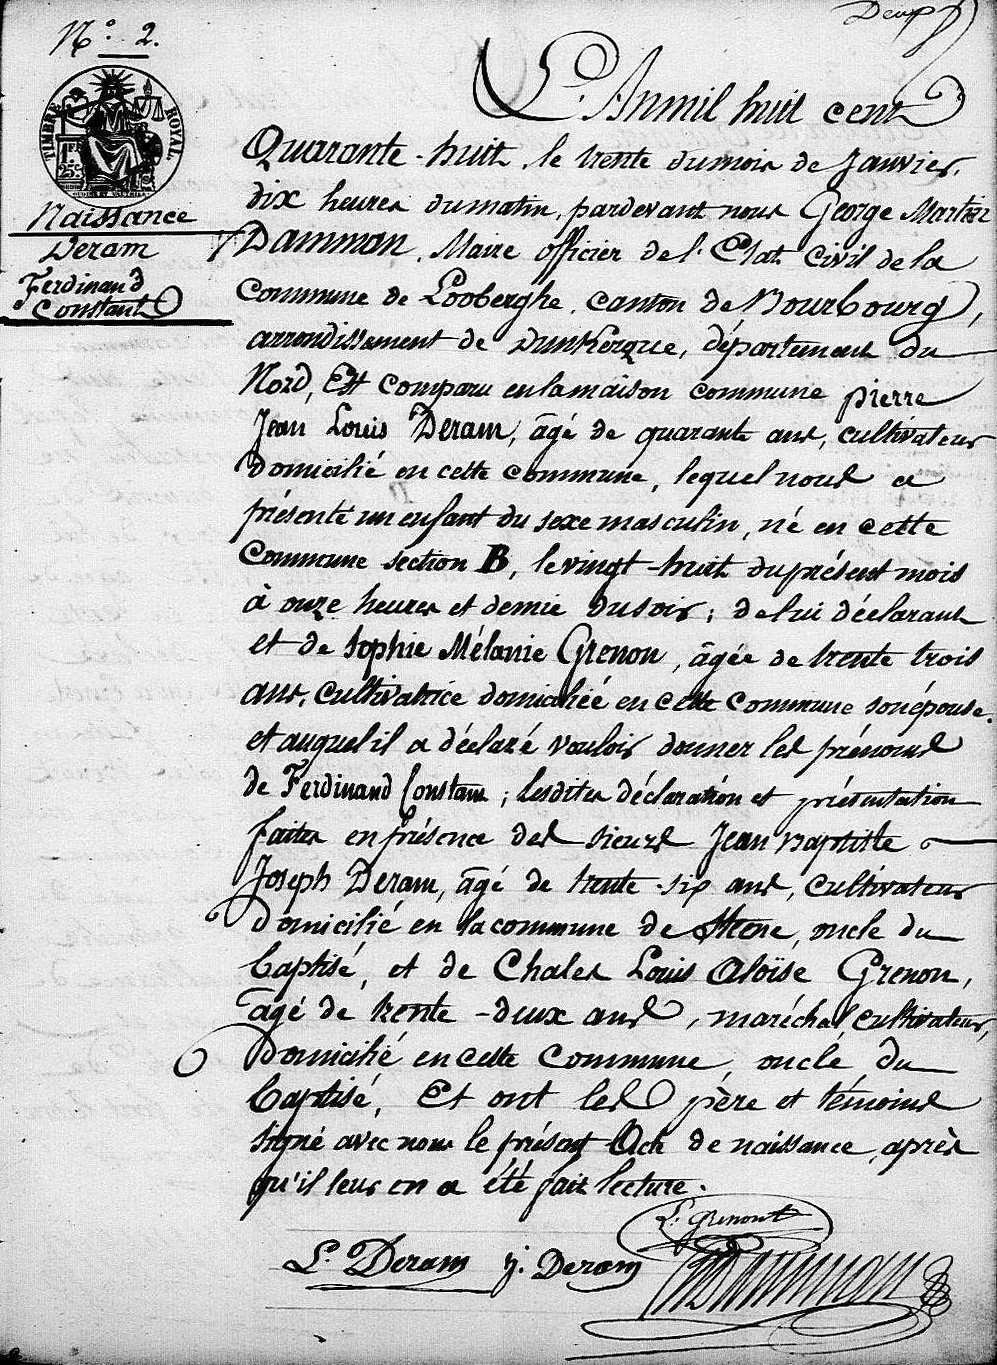 N.° 2.
TIMBRE ROYAL
25.c
Naissance
Deram
Ferdinand
Constant
Deux
L'An mil huit cent
Quarante-huit, le trente du mois de Janvier,
dix heures du matin, pardevant nous George Martin
Dammon, Maire officier de l'Etat civil de la
Commune de Looberghe, canton de Bourbourg,
arrondissement de Dunkerque, département du
Nord, Est comparu en la maison commune pierre
Jean Louis Deram, âgé de quarante ans, cultivateur
domicilié en cette commune, lequel nous a
présenté un enfant du sexe masculin, né en cette
Commune section B, le vingt-huit du présent mois
à onze heures et demie du soir; de lui déclarant
et de Sophie Mélanie Grenon, âgée de trente trois
ans, cultivatrice domiciliée en cette Commune son épouse.
et auquel il a déclaré vouloir donner les prénoms
de Ferdinand Constant; lesdites déclaration et présentation
faites en présence des sieurs Jean Baptiste
Joseph Deram, âgé de trente-six ans, cultivateur
domicilié en la commune de Steene, oncle du
baptisé, et de Chales Louis Aloïse Grenon,
âgé de trente-deux ans, maréchal, cultivateur,
domicilié en cette Commune, oncle du
baptisé, Et ont les père et témoins
signé avec nous le présent Acte de naissance, après
qu'il leur en a été fait lecture.
L. Grenont
L. Deram j. Deram Dammon